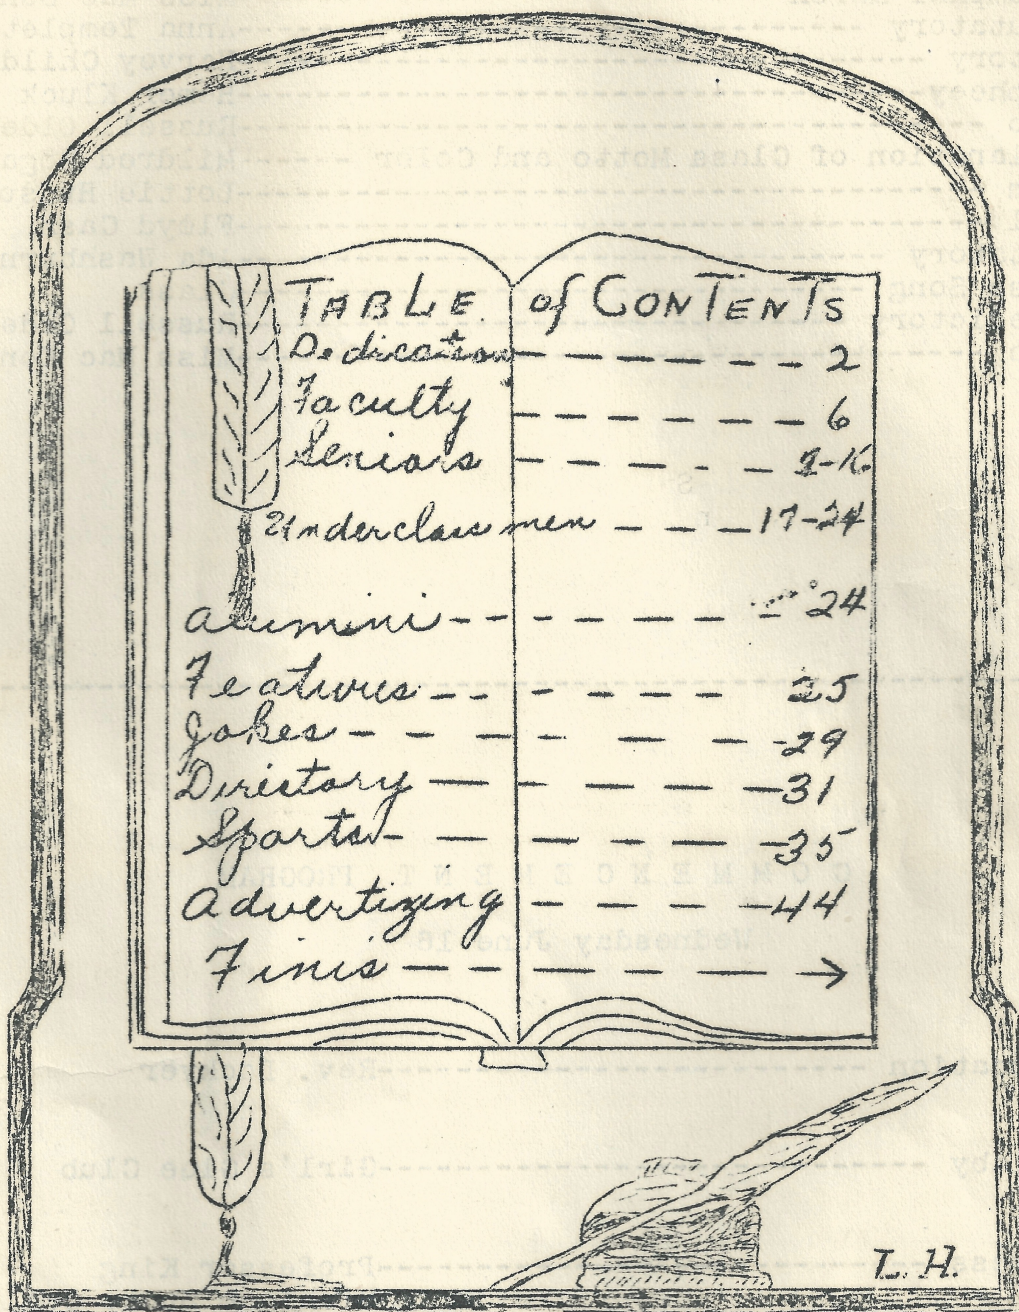 TABLE of CONTENTS
Dedication - - - - - - 2
Faculty - - - - - - 6
Seniors - - - - - -
Underclassmen - - - 17-24
Alumini - - - - - - - - 24
Features - - - - - - - 25
Jokes - - - - - - - - 29
Directory - - - - - - 31
Sports - - - - - - - 35
Advertizing - - - - 44
Finis - - - - - - - →
L. H.